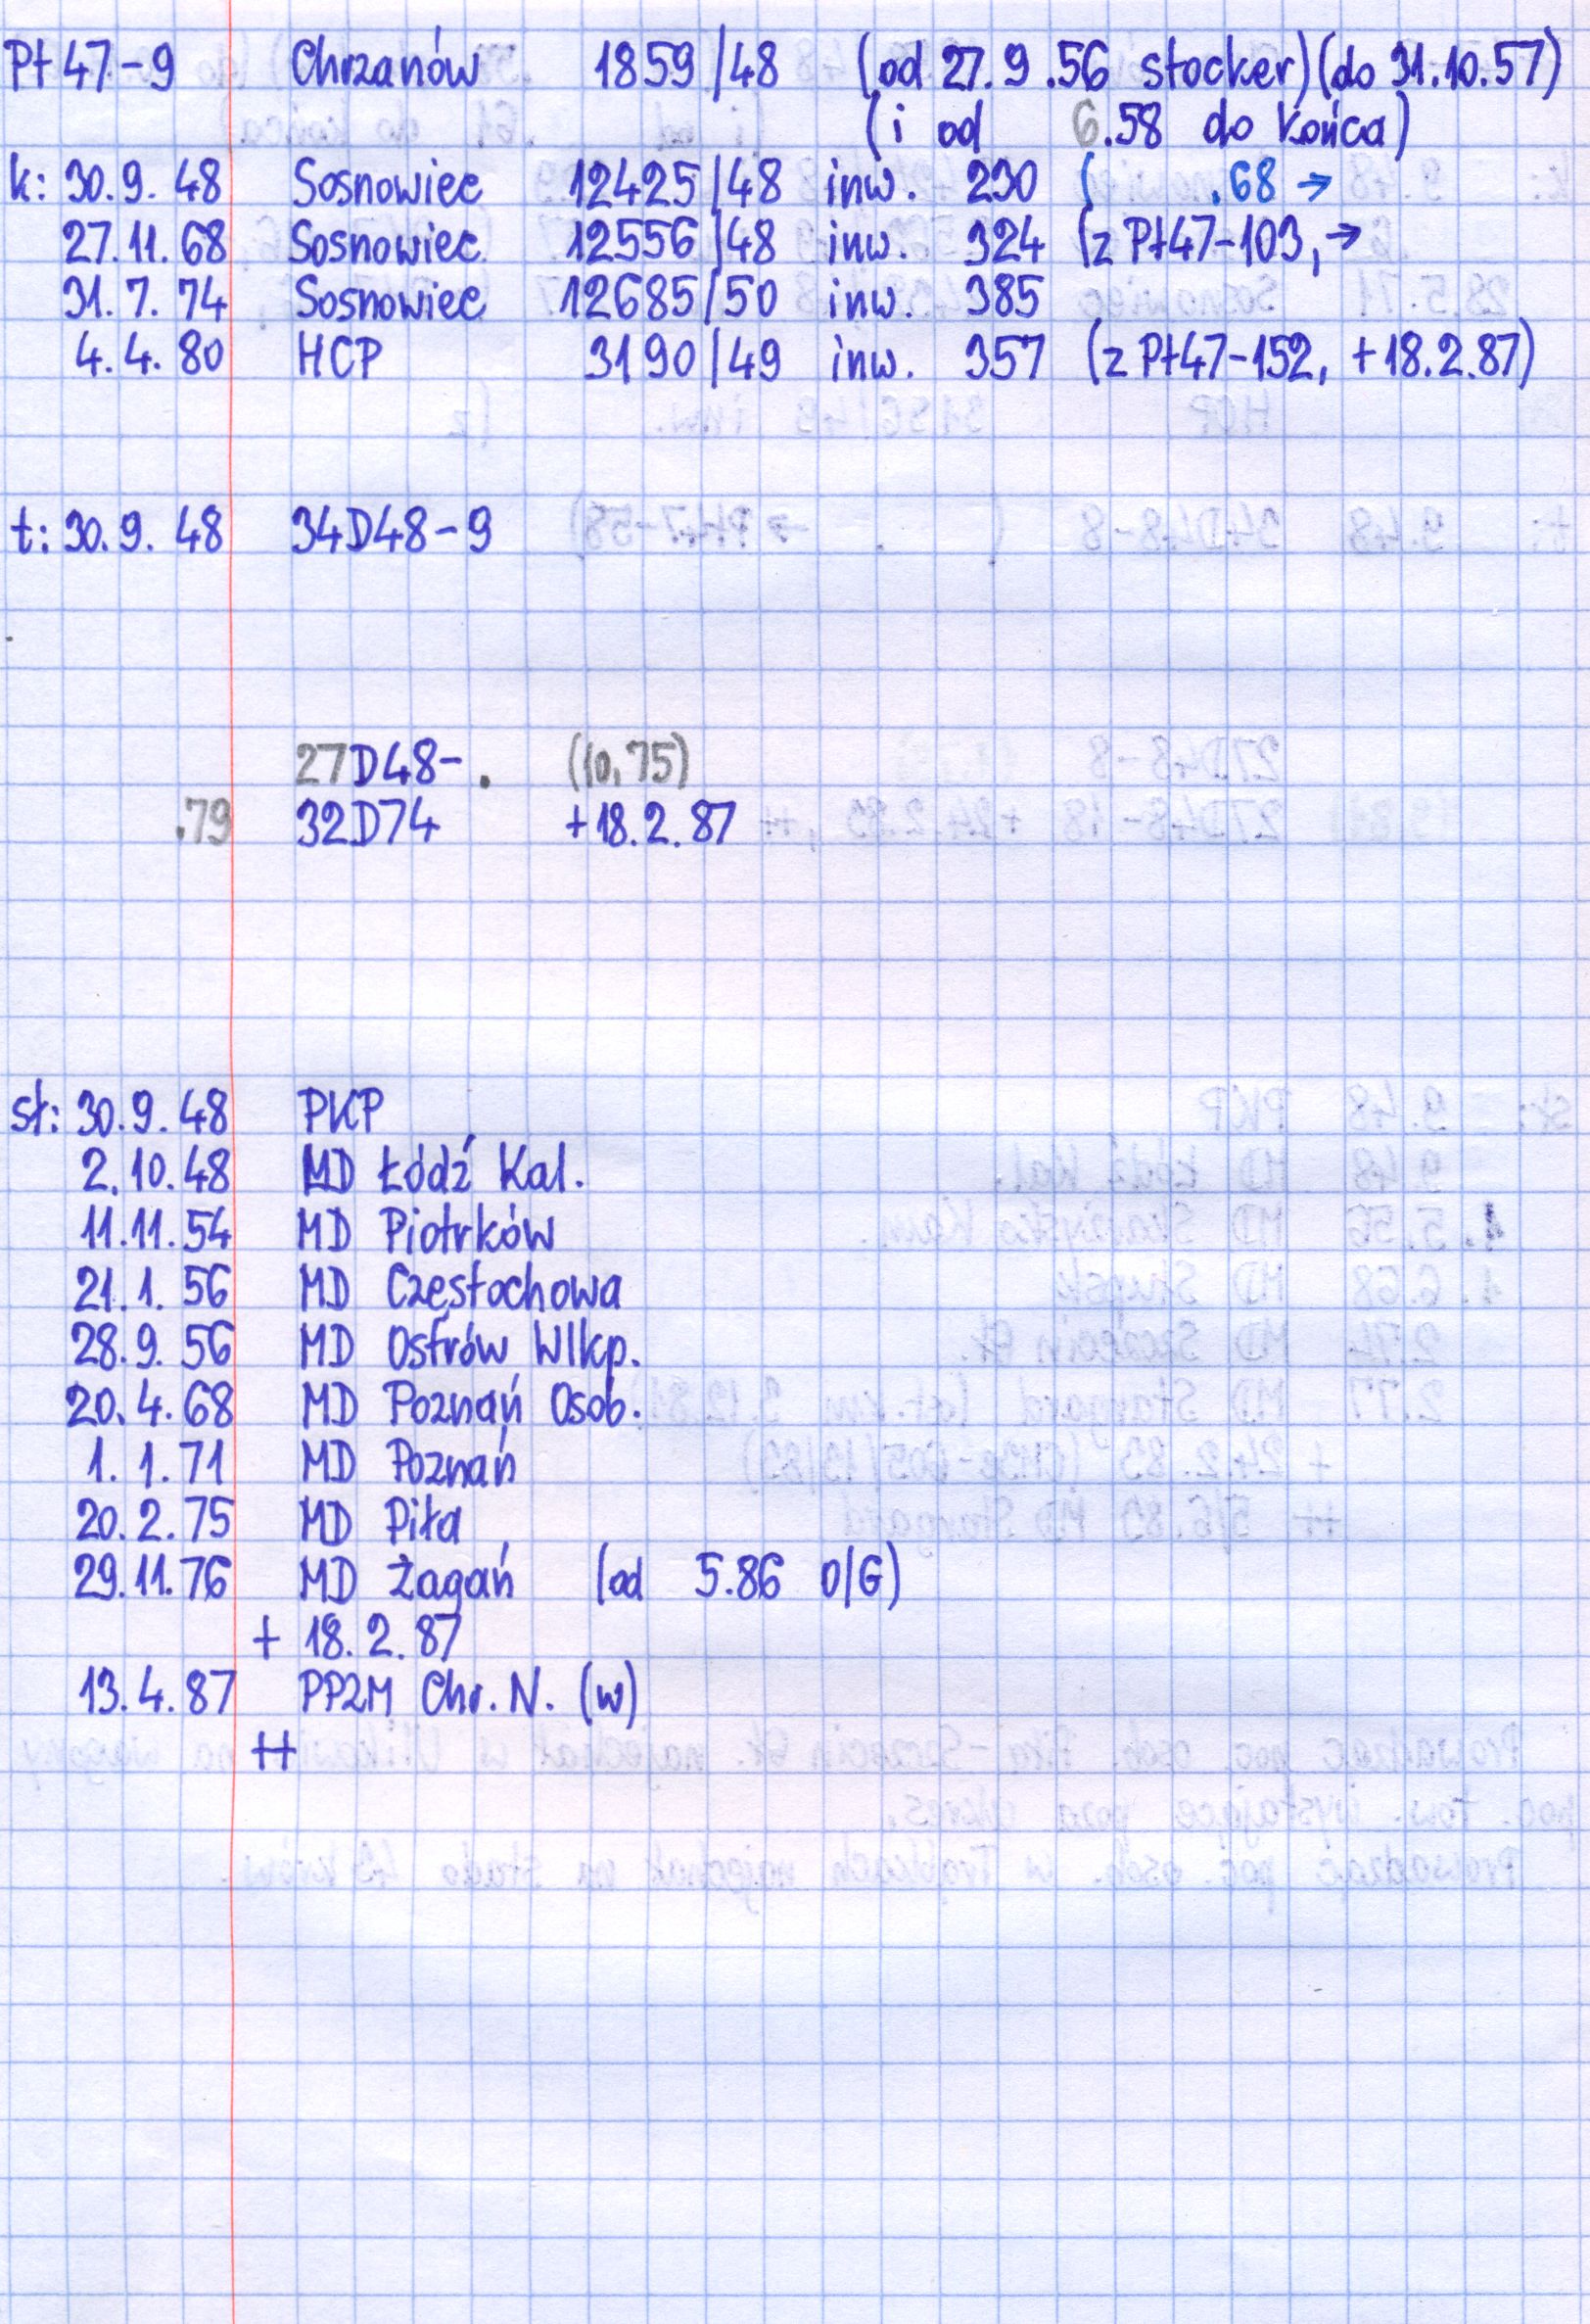 Pt47-9 Chrzanów 1859/48 (od 27.9.56 stocker)(do 31.10.57)
(i od 6.58 do końca)
k: 30.9.48 Sosnowiec 12425/48 inw. 230 ( .68 →
27.11.68 Sosnowiec 12556/48 inw. 324 (z Pt47-103, →
31.7.74 Sosnowiec 12685/50 inw. 385
4.4.80 HCP 3190/49 inw. 357 (z Pt47-152, +18.2.87)
t: 30.9.48 34D48-9
27D48-. (10,75)
.79 32D74 +18.2.87
sł: 30.9.48 PKP
2.10.48 MD Łódź Kal.
11.11.54 MD Piotrków
21.1.56 MD Częstochowa
28.9.56 MD Ostrów Wlkp.
20.4.68 MD Poznań Osob.
1.1.71 MD Poznań
20.2.75 MD Piła
29.11.76 MD Żagań (od 5.86 O/G)
+ 18.2.87
13.4.87 PPZM Chr.N. (w)
++